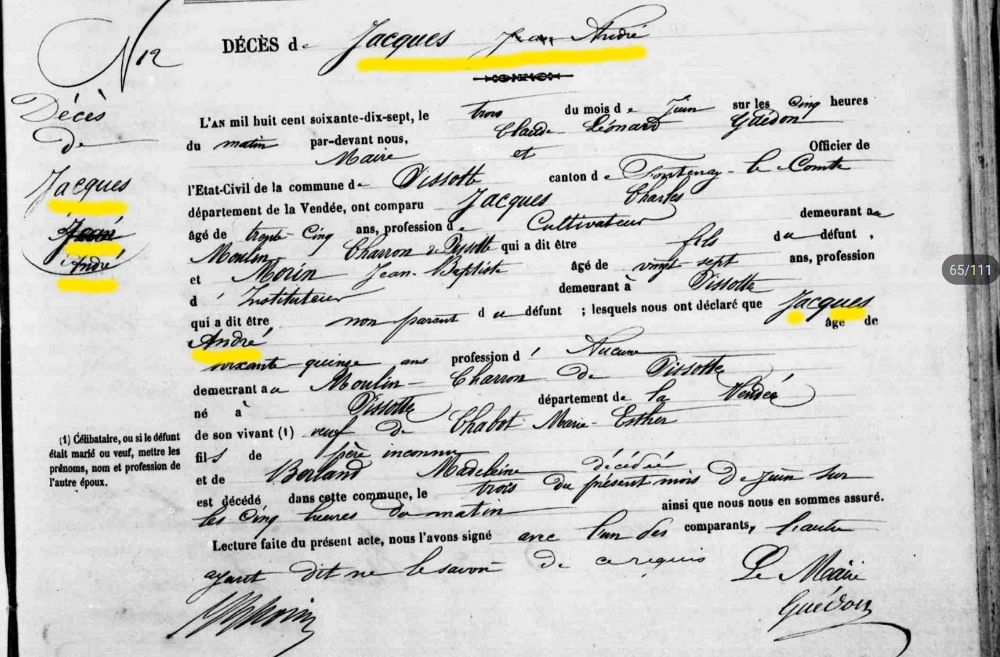 N 12
DÉCÈS de Jacques Jean André
Décès
de
Jacques
Jean
André
L'AN mil huit cent soixante-dix-sept, le trois du mois de Juin sur les Cinq heures
du matin par-devant nous, Claude Léonard Guédon
Maire et Officier de
l'Etat-Civil de la commune de Pissotte canton de Fontenay-le-Comte
département de la Vendée, ont comparu Jacques Charles
âgé de trente-Cinq ans, profession de Cultivateur demeurant au
Moulin Charron de Pissotte qui a dit être fils du défunt,
et Morin Jean-Baptiste âgé de vingt sept ans, profession
d'Instituteur demeurant à Pissotte
qui a dit être non parent du défunt ; lesquels nous ont déclaré que Jacques
André âgé de
soixante-quinze ans profession d' Aucune
demeurant au Moulin-Charron de Pissotte
né à Pissotte département de la Vendée
de son vivant (1) veuf de Chabot Marie-Esther
fils de père inconnu
et de Madeleine décédée
est décédé dans cette commune, le trois du présent mois de Juin sur
les Cinq heures du matin ainsi que nous nous en sommes assuré.
Lecture faite du présent acte, nous l'avons signé avec l'un des comparants, l'autre
ayant dit ne le savoir de ce requis
Le Maire
Guédon
(1) Célibataire, ou si le défunt
était marié ou veuf, mettre les
prénoms, nom et profession de
l'autre époux.
65/111